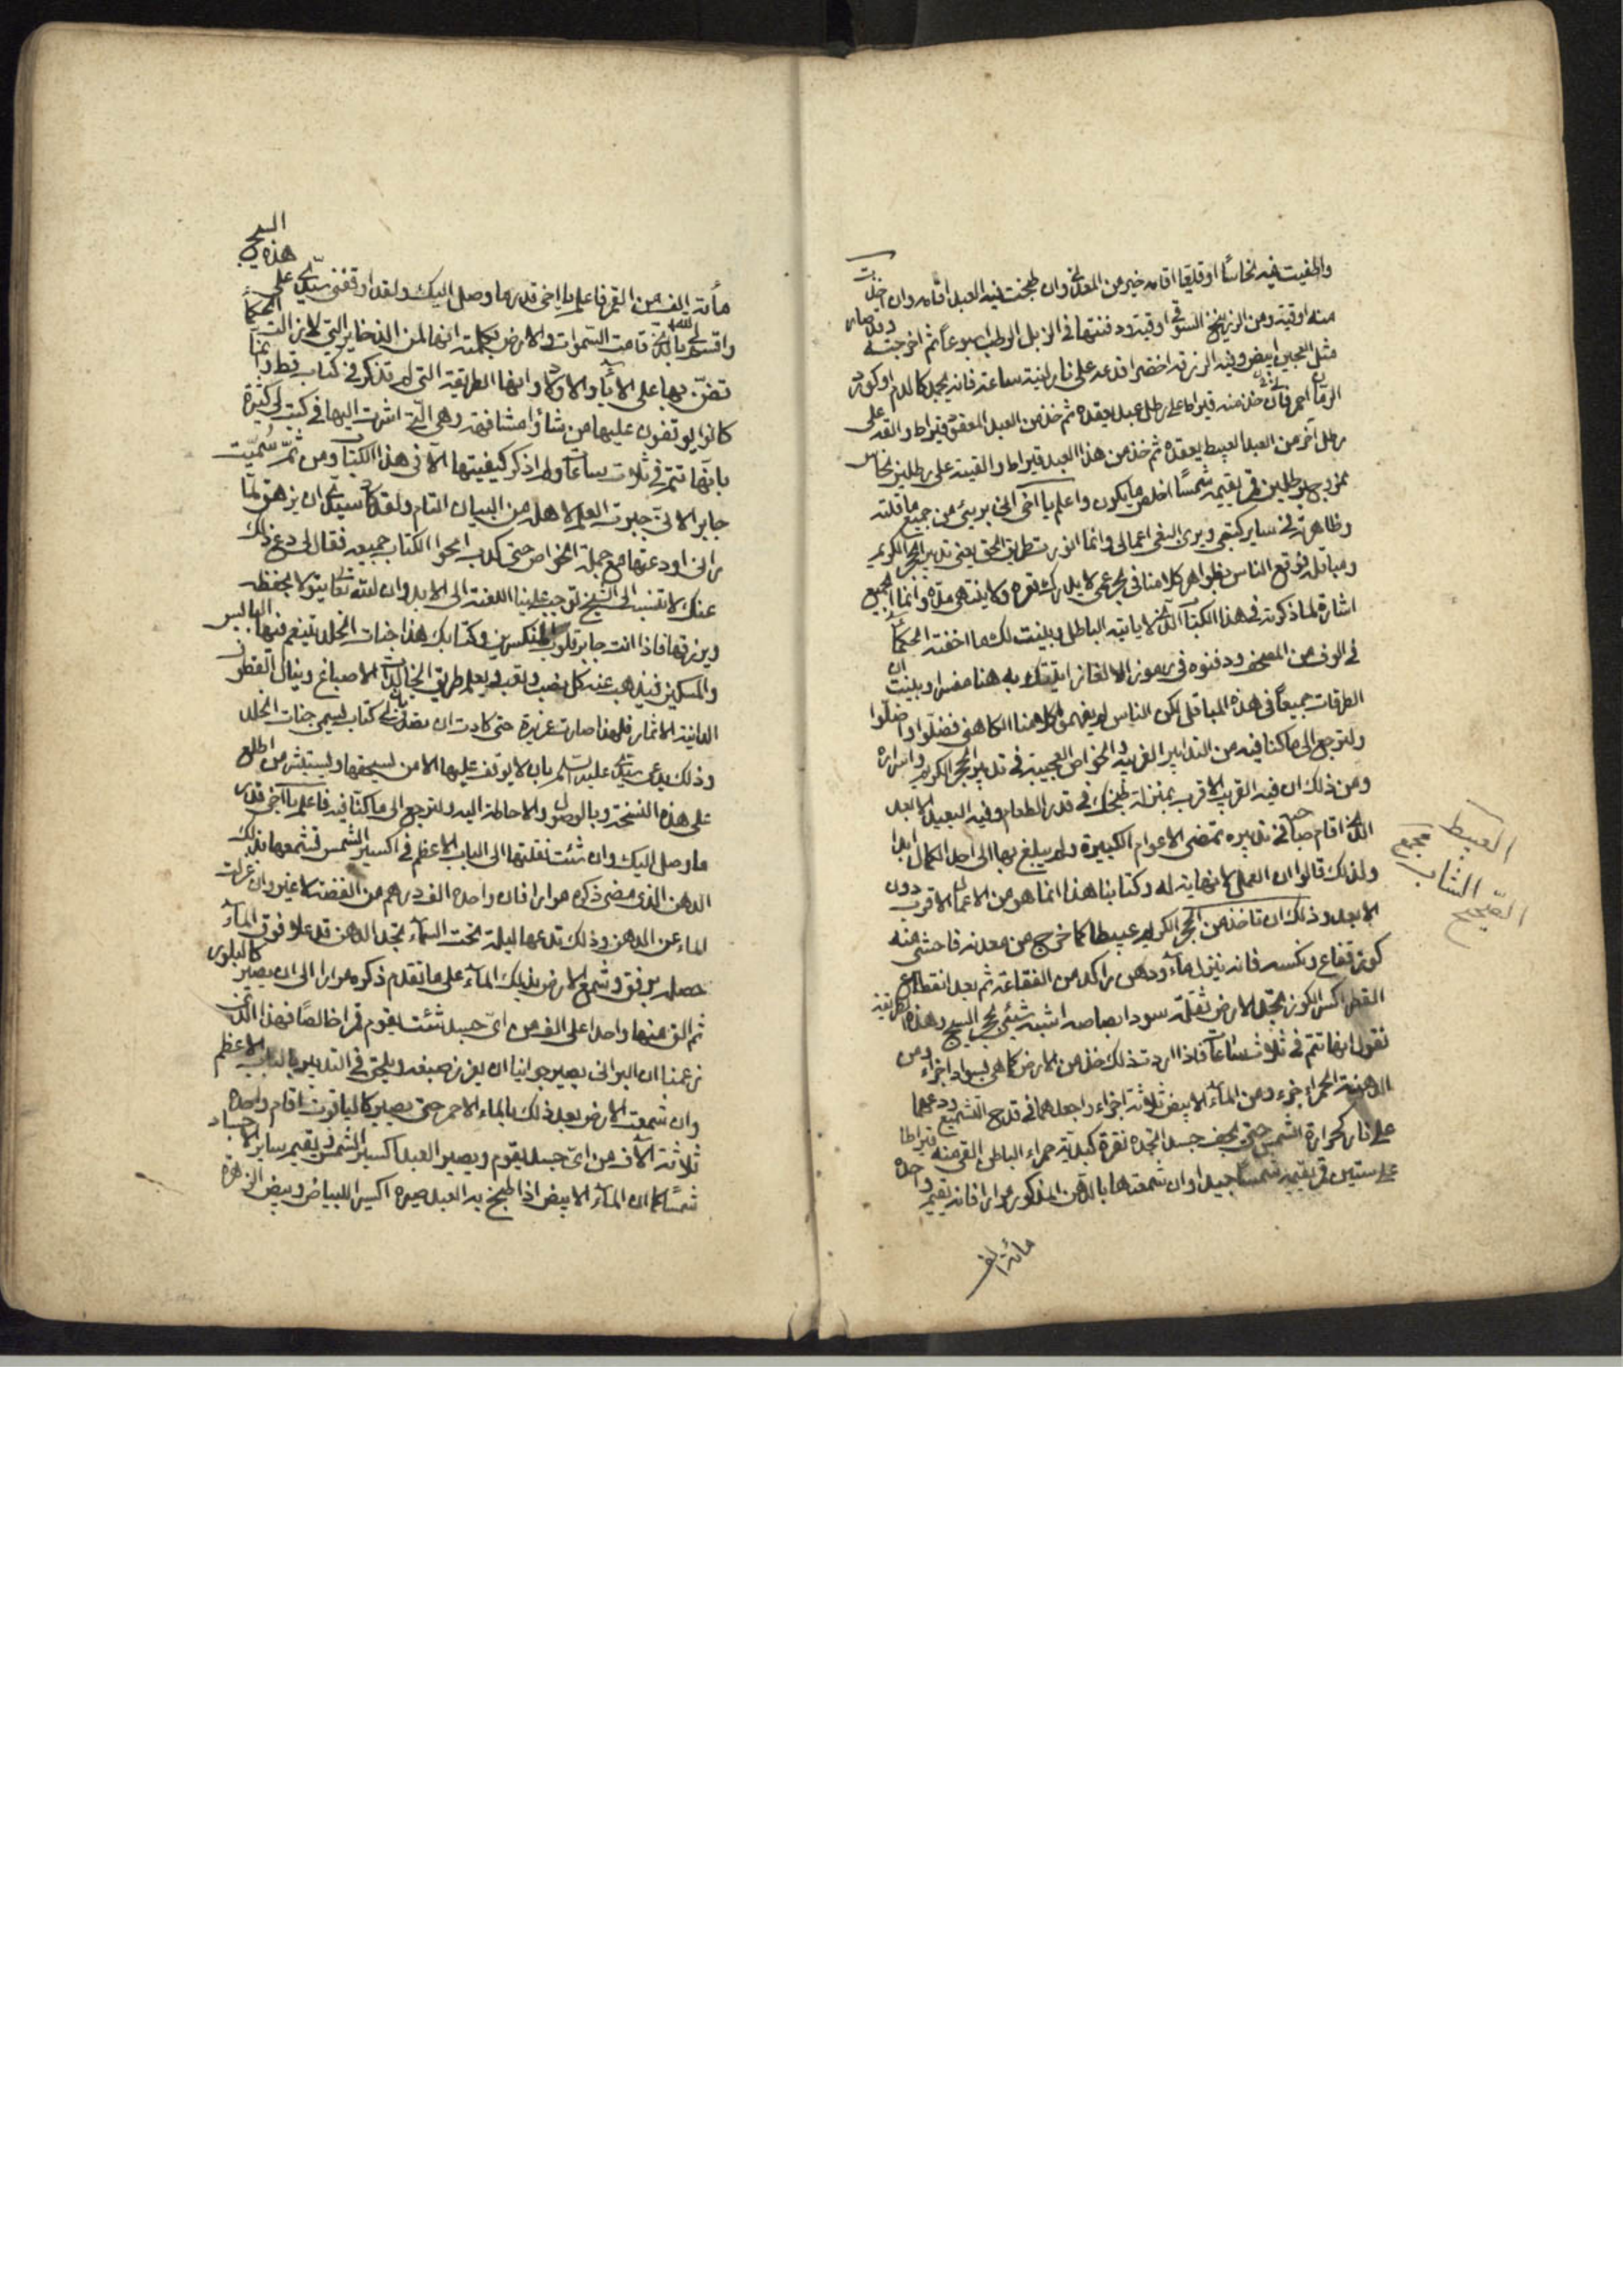 واطفيت فيه نحاسا او قلعيا اقامه خير من المعدني وان طبخت فيه العبد اقامه وان اخذت
منه اوقية ومن الزرنيخ السوقي اوقية ودفنتها في الزبل الرطب اسبوعا ثم اخرجته وقد صار
مثل العجين ابيض وفيه الزرقة اخضر اقدعه على نار لينة ساعة فانه يحمر كالدم او كورد
الرمان احمر قاني خذ منه قيراط على رطل عبد يعقده ثم خذ من العبد المعقود قيراط والقه على
رطل آخر من العبد العبيط يعقده ثم خذ من هذا العبد قيراط والقيته على رطلين نحاس
ممزوج برطلين قمر يقيمه شمسا اخلص ما يكون واعلم يا اخي اني بريئ من جميع ما قلته
وظاهرته في ساير كتبي وبرى النفى اعمالي وانما الذي طريق الحق يعني تدبير الحجر الكريم
ومباقله فوقع الناس بظواهر كلامنا في بحر عمى لا يدرك قعره ولا ينتهى مده وانما الجميع
اشارة لما ذكرته في هذا الكتاب الذي لا ياتيه الباطل وبينت لك ما اخفته الحكماء
في الوف من المصحف ودفنوه في رموز الالغاز اتيتك به هنا مفسرا وبينت ان
الطرقات جميعا في هذه المباقل لكن الناس لم يفهموا كلامنا الكاهني فضلوا واضلوا
ولنرجع الى ما كنا فيه من التدابير الغريبة والخواص العجيبة في تدبير الحجر الكريم واسراره
ومن ذلك ان فيه القريب الاقرب بمنزلة طبخك في قدر الطعام وفيه البعيد الابعد
الذي اقام صاحبه في تدبيره تمضى الاعوام الكثيرة ولم يبلغ بها الى احد الكمال ابدا
ولذلك قالوا ان العمل لا نهاية له وكتابنا هذا انما هو من الاعمال الاقرب دون
الابعد وذلك ان تاخذ من الحجر الكريم عبيطا كما خرج من معدنه فاحشى منه
كوز فقاع ونكسه فانه ينزل ماء ودهن راكد من الفقاعة ثم بعد انقطاع
القطر اكسر الكوز تجد الارض ثفله سودا بصاصه اشبه شيئ بحجر السبج وهذه الطريقة
نقول انها تتم في ثلاث ساعات فاذا اردت ذلك خذ من الارض كما هى بسواد اجزاء ومن
الدهنة الحمراء جزء ومن الماء الابيض ثلاثة اجزاء واجعلهما في قدح التشميع ودعهما
على نار كحرارة الشمس حتى يجف جسد اتجده نقرة كبدية حمراء الباطن القي منه قيراطا
على ستين قمر يقيمه شمسا جيدا وان شمعتها بالدهن المذكور مرارا فانه يقيم واحده
مائة الف
العبيط
الشاب
الصحيح
السبج
هذه
مائة الف من القمر فاعلم يا اخي قدر ما وصل اليك ولقد اوقفني سيدي على
واقسم لي بالذي قامت السموات والارض بكلمته انها لمن الذخاير التي لا زالت الحكماء
تضن بها على الاباء والاولاد وانها الطريقة التي لم تذكر في كتاب قط وانما
كانوا يوقفون عليها من شاؤا مشافهة وهى التى اشرت اليها في كتب لي كثيرة
بانها تتم في ثلاث ساعات ولم اذكر كيفيتها الا في هذا الكتاب ومن ثم سميت
جابر الانى جبرت العلم لاهله من البيان التام ولقد كاد سيدي ان يزهق لما
راني اودعتها مع جملة الخواص حتى كدت امحوا الكتاب جميعه فقال لي دع ذلك
عنك لا تنسب الى الشيخ توجب علينا اللعنة الى الابد وان الله تعالى يتولا بحفظه
ويرزقها فاذا انت جابر قلوب المنكسرين وكتابك هذا جنات الخلد يتنعم فيها البايس
والمسكين فيذهب عنه كل نصب وتعب ويعلم طريق الخالدات الاصباغ وينال القطوف
الدانية الاثمار فلهذا صارت عزيزة حتى كادت ان بعد لي كتاب يسمى جنات الخلد
وذلك بدعاء سيدي عليه السلم بان لا يوقف عليها الا من يستحقها ويستبشر من اطلع
على هذه النسخة وبالوصول والاحاطة اليه ولنرجع الى ما كنا فيه فاعلم يا اخي قدر
ما وصل اليك وان شئت نقلتها الى الباب الاعظم في اكسير الشمس فشمعها بذلك
الدهن الذي مضى ذكره مرارا فان واحده الف درهم من الفضة لا غير وان عزلت
الماء عن الدهن وذلك تدعها ليلة تحت السماء تجد الدهن قد علا فوق الماء
حصله برفق وشمع الارض بذلك الماء على ما تقدم ذكره مرارا الى ان يصير كالبلور
ثم الق منها واحدا على الف من اى جسد شئت يقوم قمرا خالصا فهذا الذي
زعمنا ان البراني يصير جوانيا ان يغزر صبغه ويلحق في التدبير بالباب الاعظم
وان شمعت الارض بعد ذلك بالماء الاحمر حتى يصير كالياقوت اقام واحده
ثلاثة الآف من اى جسد يقوم ويصير العبد اكسير الشمس يقيم ساير الاجساد
شمسا كما ان الماء الابيض اذا طبخ به العبد صيره اكسير للبياض وبيض الزهرة